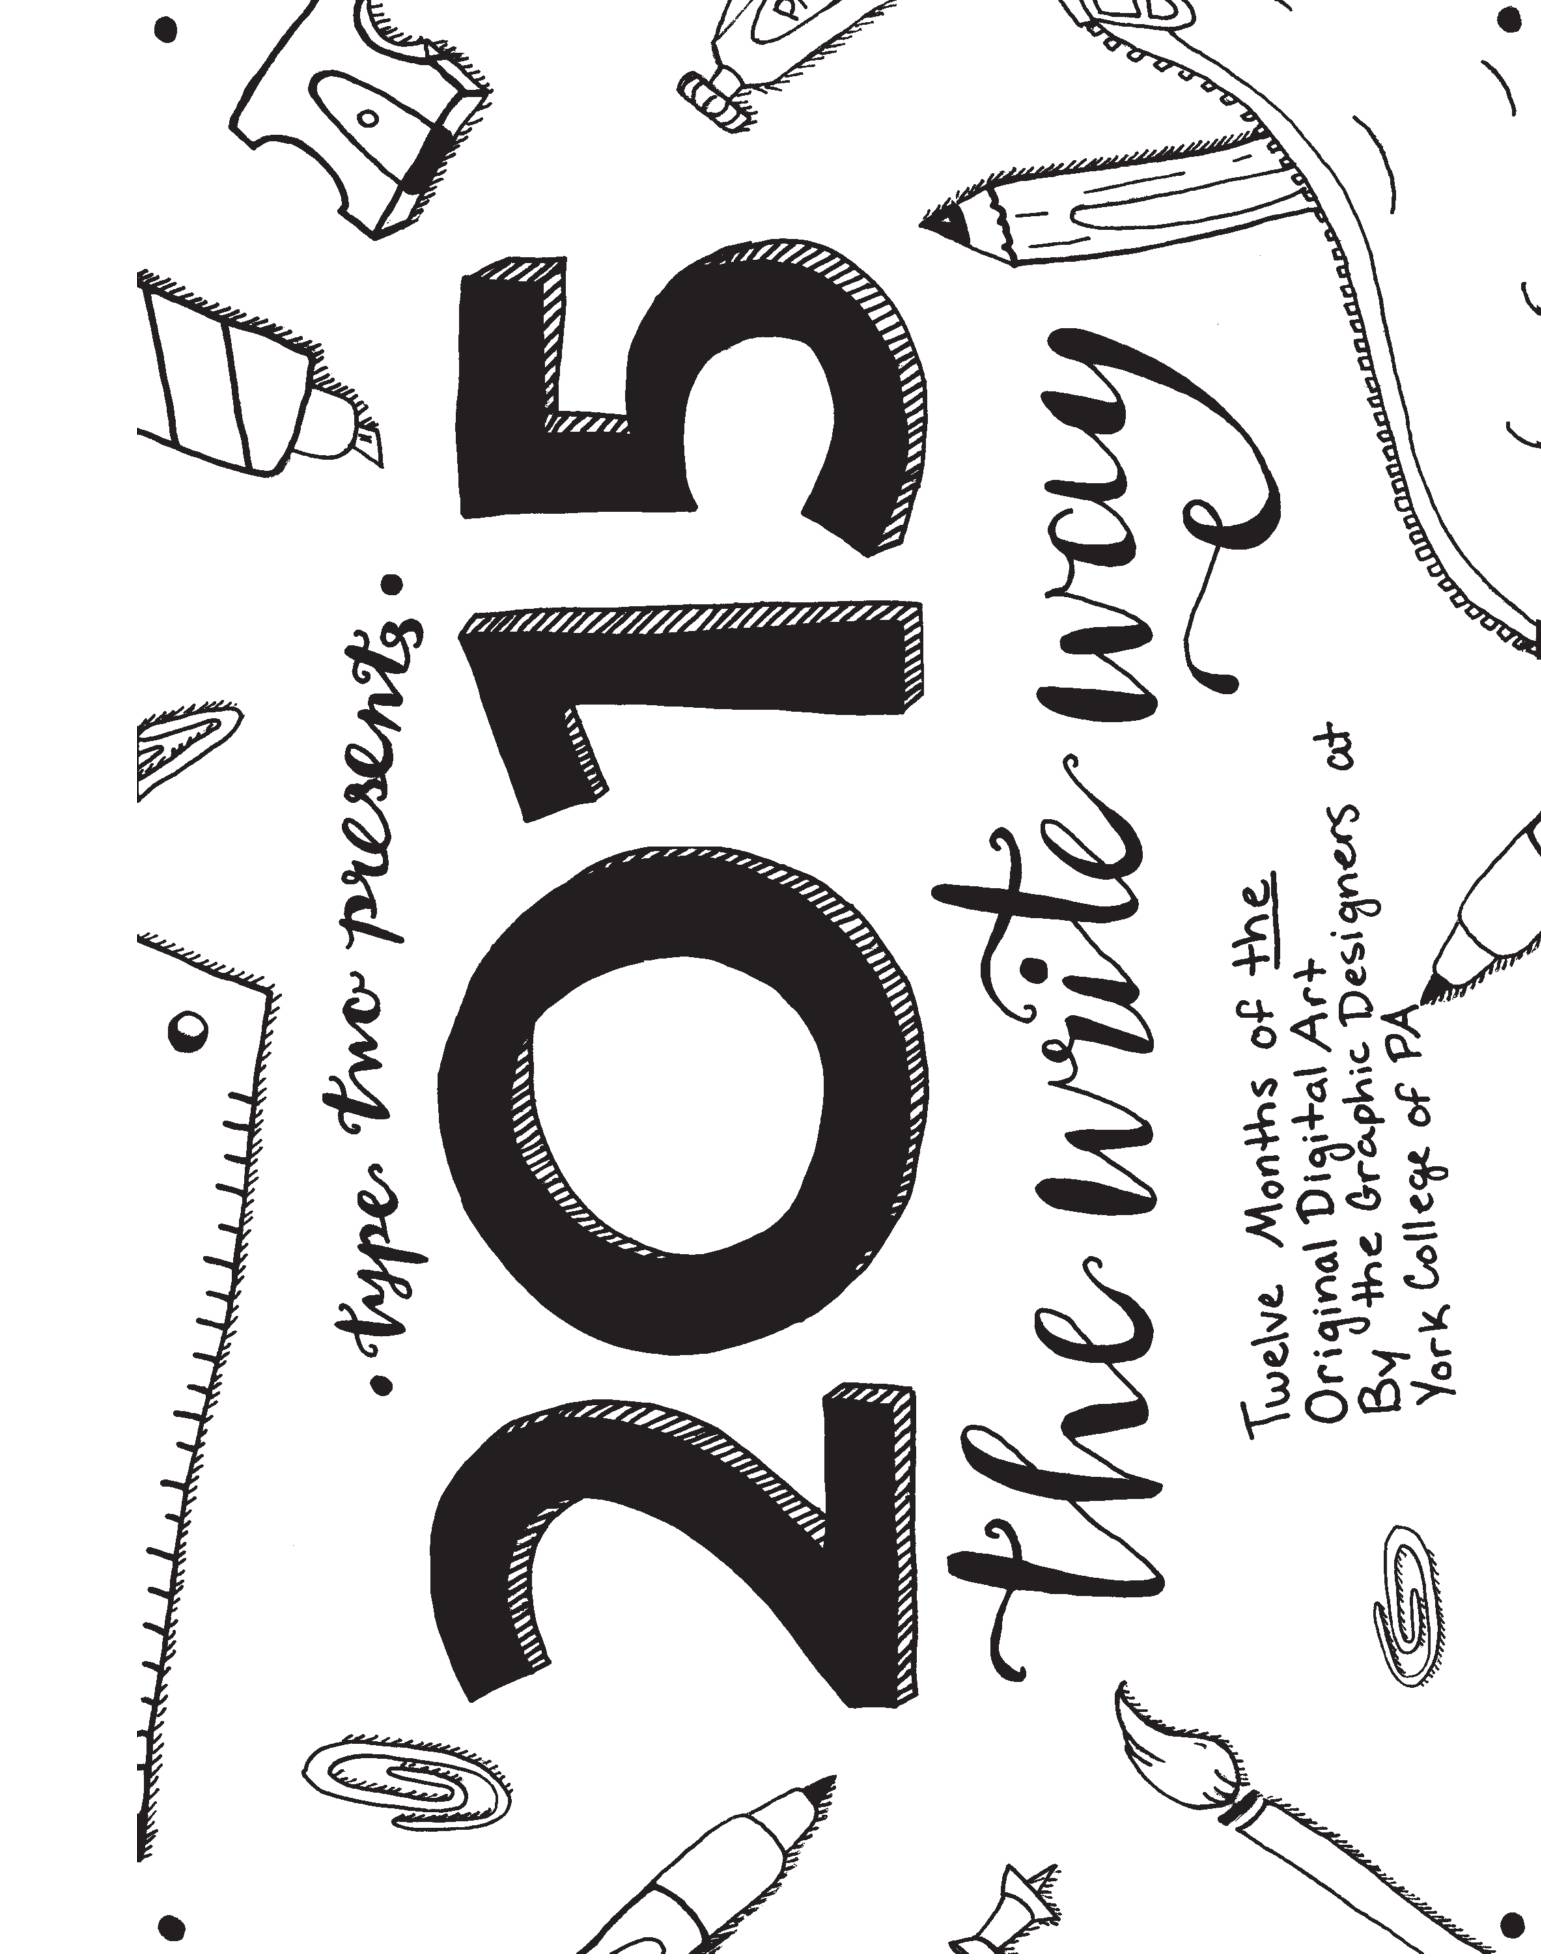 type two presents
2015
the write way
Twelve Months of the
Original Digital Art
By the Graphic Designers at
York College of PA